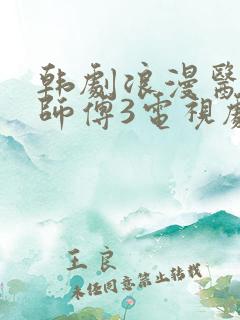 韩劇浪漫醫
師傅3電視劇
王良
未經同意禁止轉載